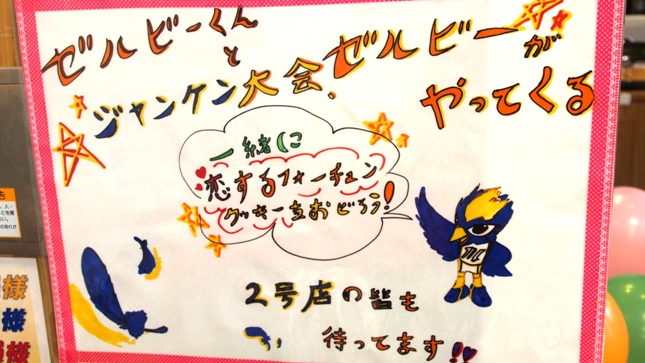 ゼルビーくん
と
ジャンケン大会、
ゼルビーが
やってくる
一緒に
恋するフォーチュン
クッキーをおどろう!
2号店の皆も
待ってます!!
様
様
様